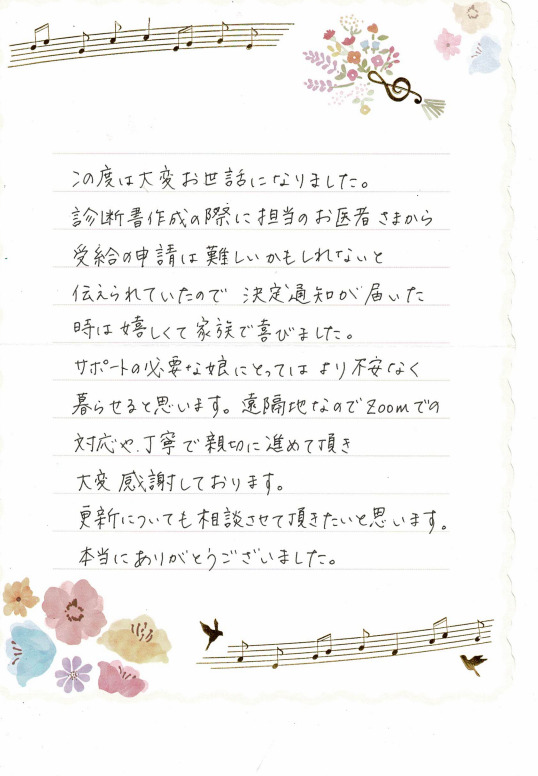 この度は大変お世話になりました。
診断書作成の際に担当のお医者さまから
受給の申請は難しいかもしれないと
伝えられていたので 決定通知が届いた
時は嬉しくて家族で喜びました。
サポートの必要な娘にとってはより不安なく
暮らせると思います。遠隔地なのでZoomでの
対応や、丁寧で親切に進めて頂き
大変感謝しております。
更新についても相談させて頂きたいと思います。
本当にありがとうございました。